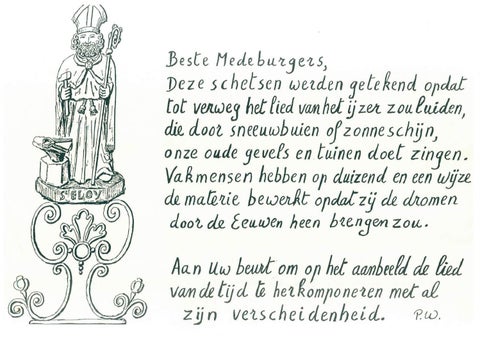 Beste Medeburgers,
Deze schetsen werden getekend opdat
tot verweg het lied van het ijzer zou luiden,
die door sneeuwbuien of zonneschijn,
onze oude gevels en tuinen doet zingen.
Vakmensen hebben op duizend en een wijze
de materie bewerkt opdat zij de dromen
door de Eeuwen heen brengen zou.
Aan Uw beurt om op het aanbeeld de lied
van de tijd te herkomponeren met al
zijn verscheidenheid. P.W.
St ELOY